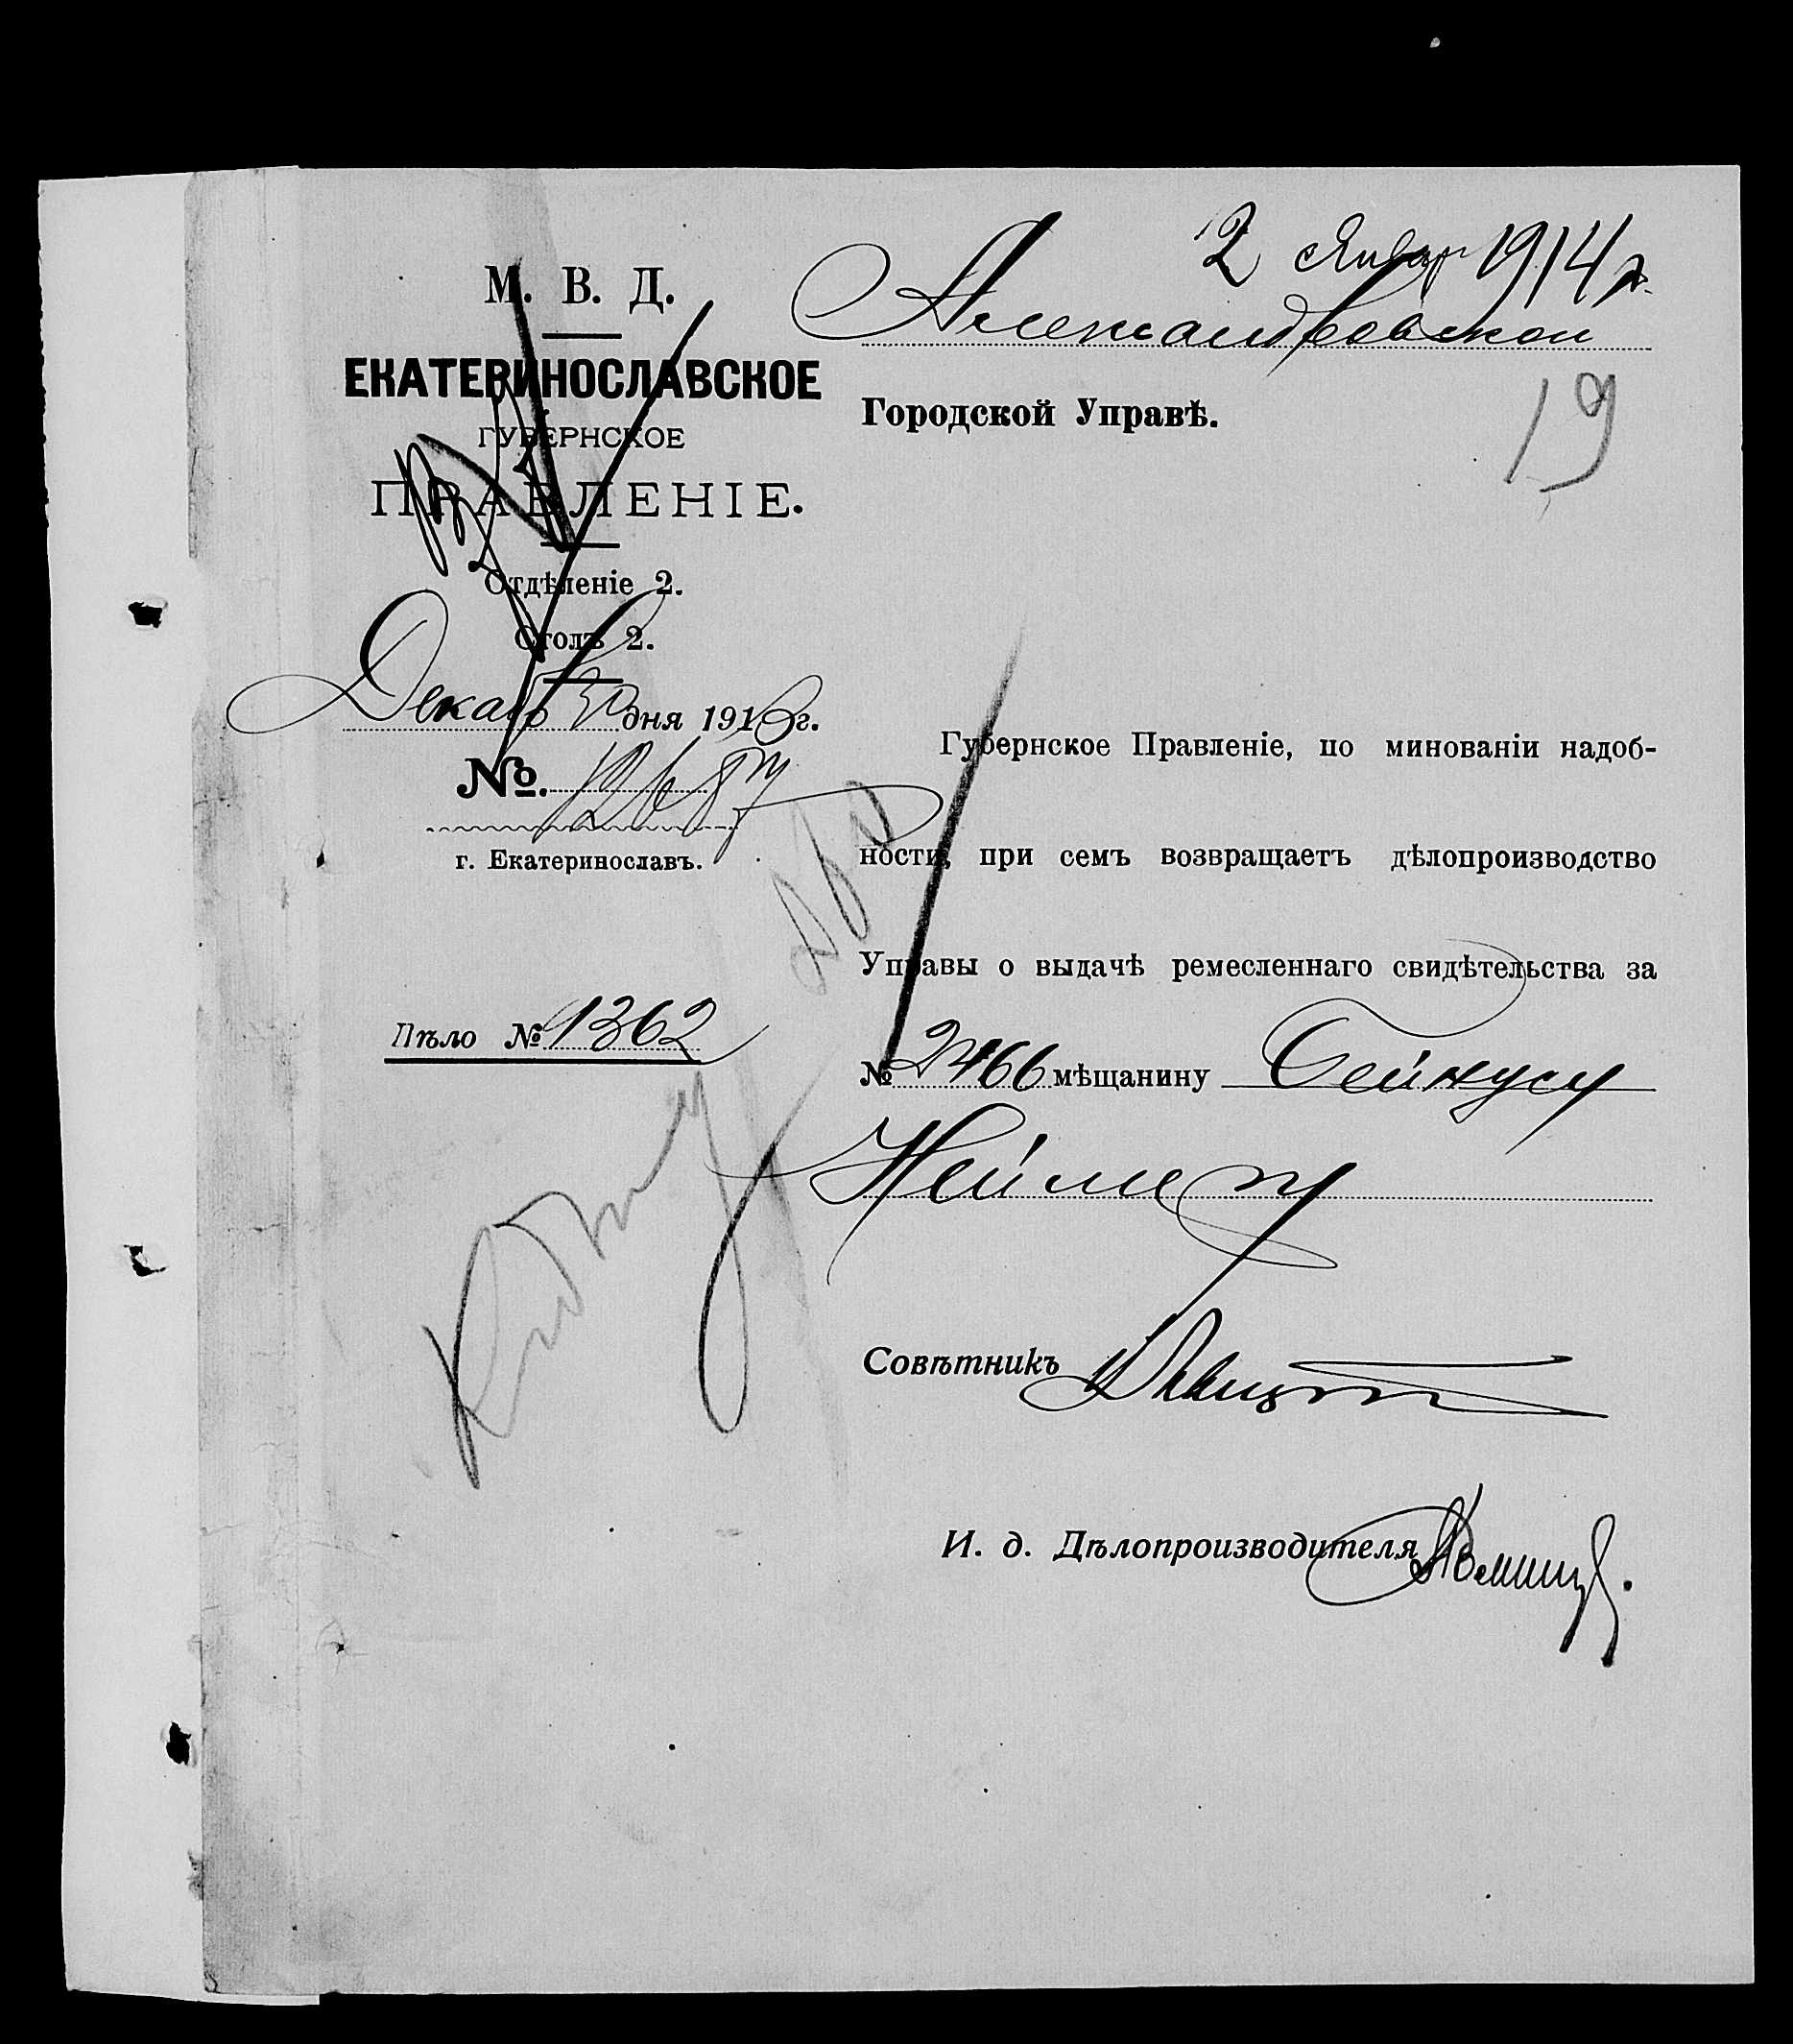 2 Январ 1914 г.
М. В. Д.
ЕКАТЕРИНОСЛАВСКОЕ
ГУБЕРНСКОЕ
ПРАВЛЕНІЕ.
Отдѣленіе 2.
Столъ 2.
Декаб 30 дня 1913 г.
№.
г. Екатеринославъ.
Дѣло № 1362
Александровской
Городской Управѣ.
19
Губернское Правленіе, по минованіи надоб-
ности, при семъ возвращаетъ дѣлопроизводство
Управы о выдачѣ ремесленнаго свидѣтельства за
№ 2466 мѣщанину Бейнусу
Неймеру
Совѣтникъ
И. д. Дѣлопроизводителя